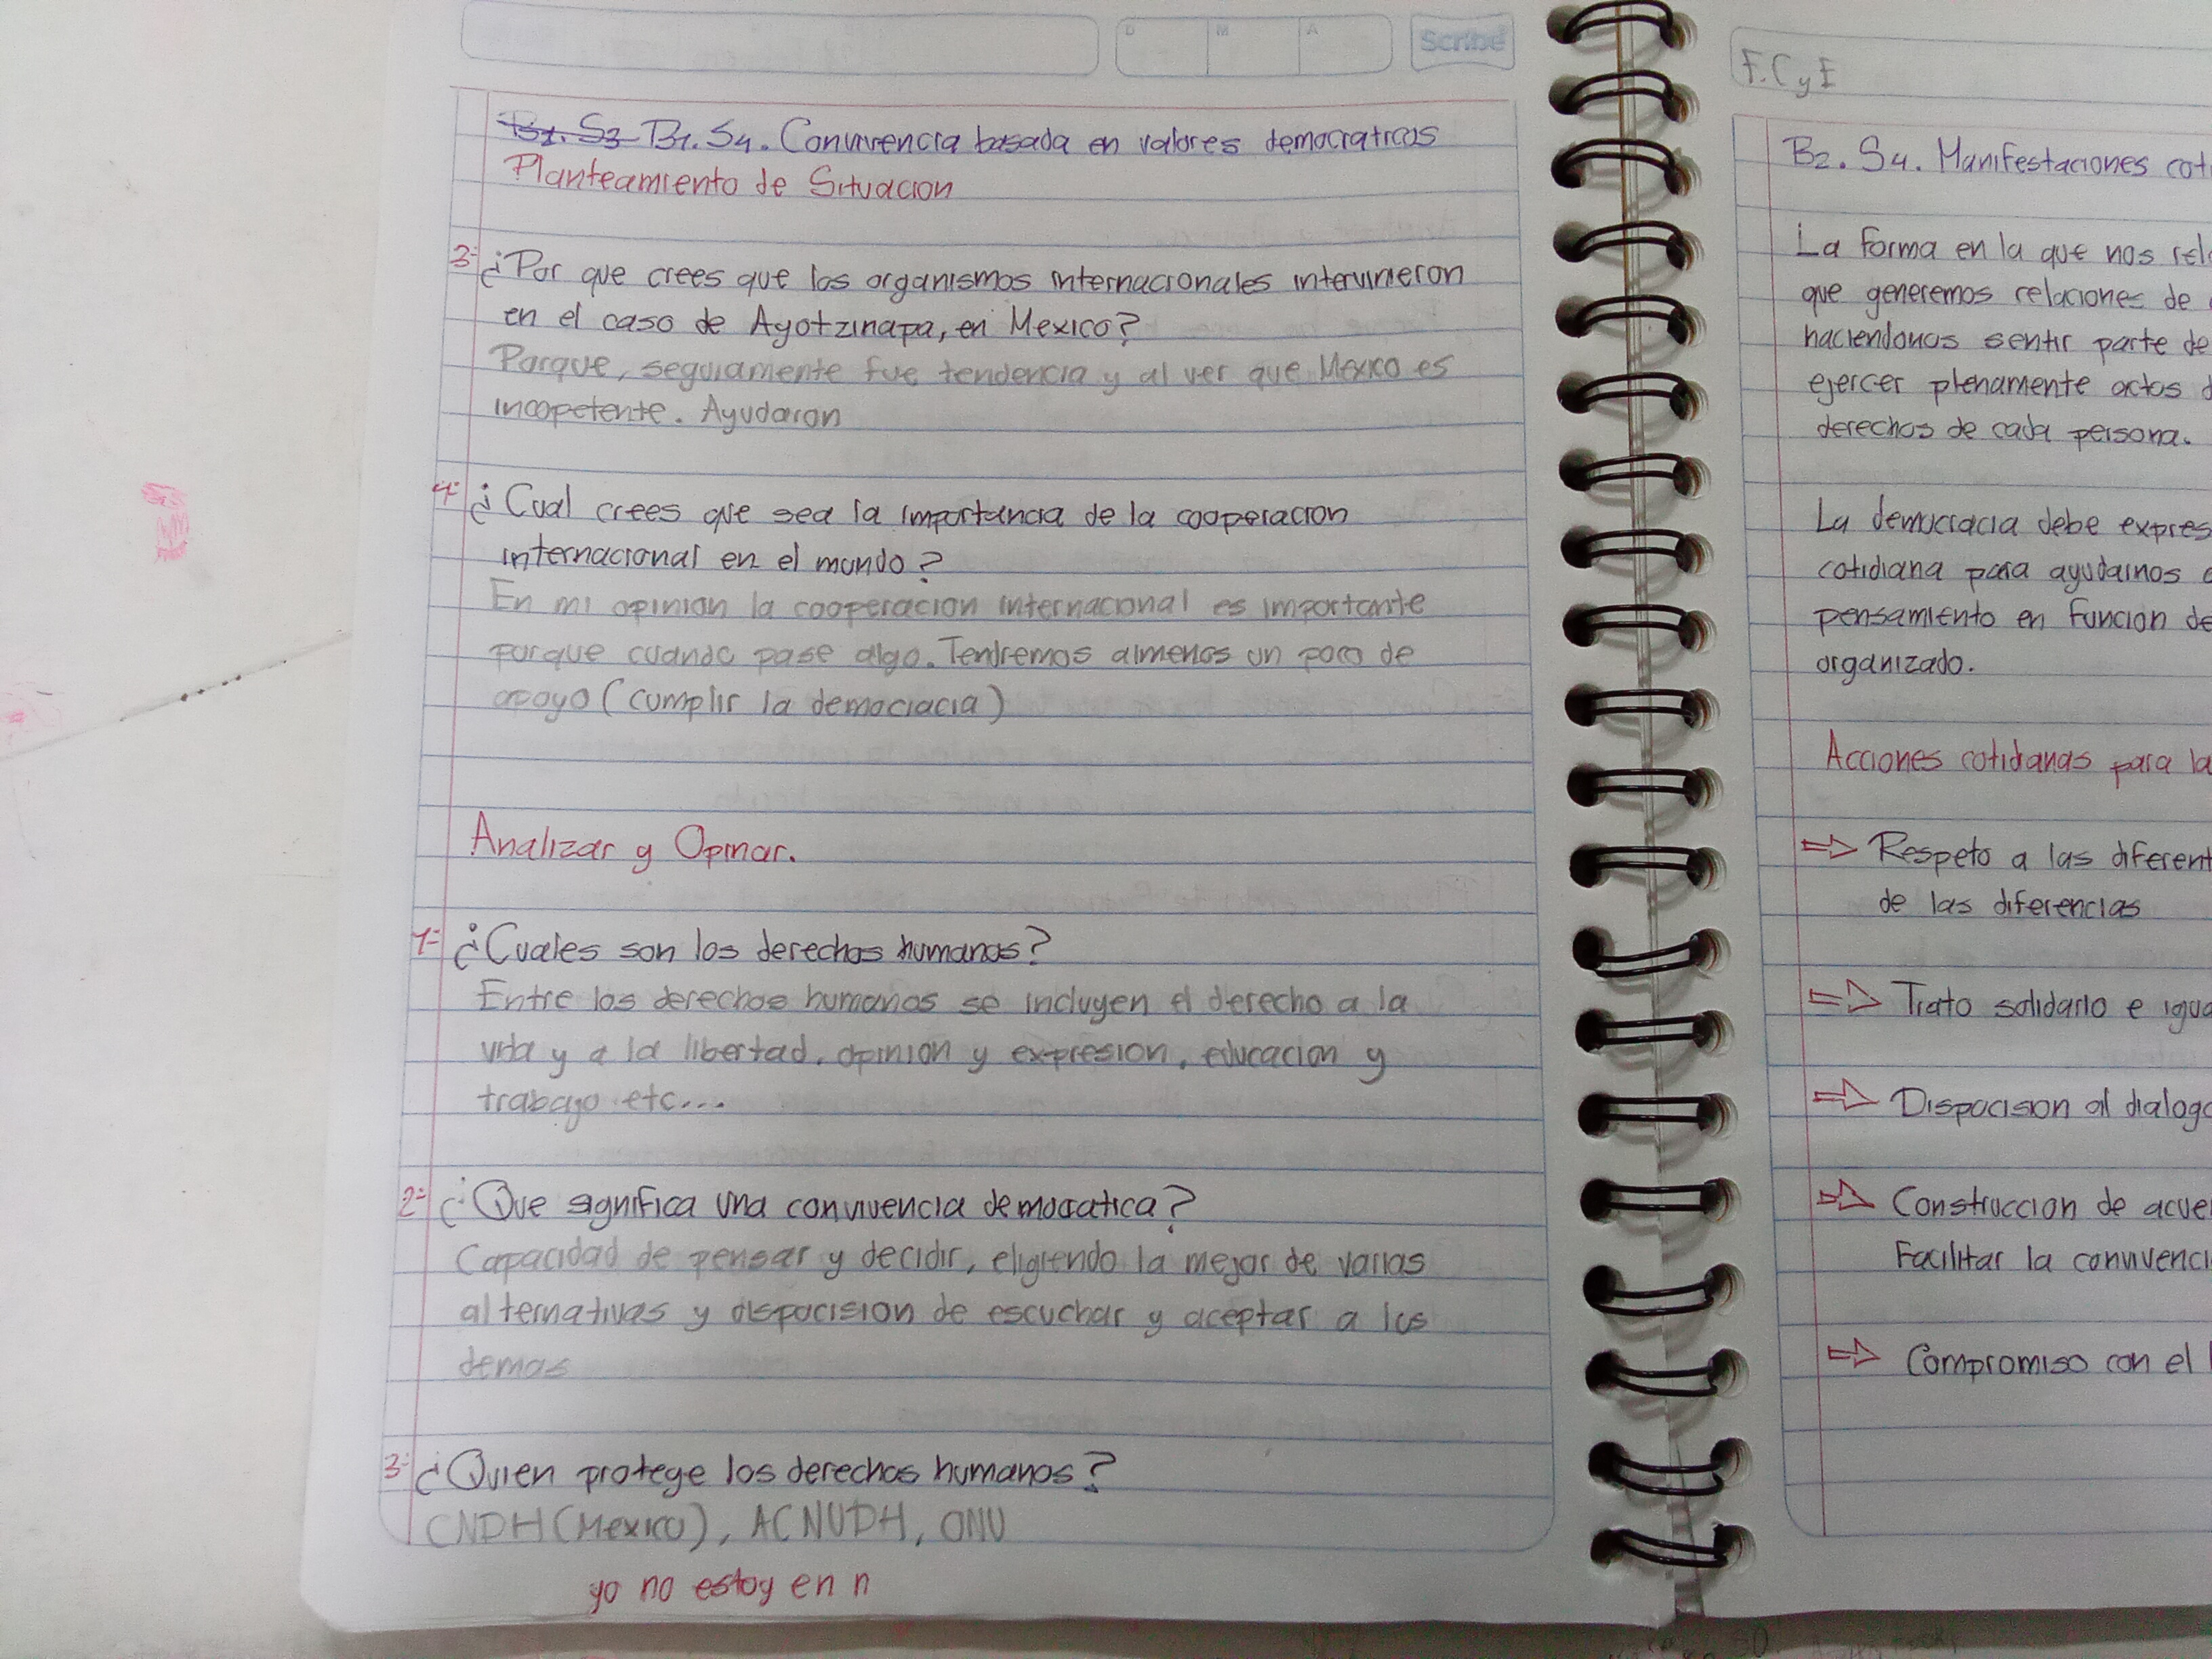 D M A Scribe
B1. S3 B1. S4. Convivencia basada en valores democraticos
Planteamiento de Situacion
3- ¿Por que crees que los organismos internacionales intervinieron
en el caso de Ayotzinapa, en Mexico?
Porque, seguramente fue tendencia y al ver que Mexico es
incopetente. Ayudaron
4- ¿Cual crees que sea la importancia de la cooperacion
internacional en el mundo?
En mi opinion la cooperacion internacional es importante
porque cuando pase algo. Tendremos almenos un poco de
apoyo (cumplir la democracia)
Analizar y Opinar.
1- ¿Cuales son los derechos humanos?
Entre los derechos humanos se incluyen el derecho a la
vida y a la libertad, opinion y expresion, educacion y
trabajo etc...
2- ¿Que significa una convivencia democratica?
Capacidad de pensar y decidir, eligiendo la mejor de varias
alternativas y dispocision de escuchar y aceptar a los
demas
3- ¿Quien protege los derechos humanos?
CNDH (Mexico), ACNUDH, ONU
yo no estoy en n
F.C y E
B2. S4. Manifestaciones coti
La forma en la que nos rel
que generemos relaciones de
haciendonos sentir parte de
ejercer plenamente actos d
derechos de cada persona.
La democracia debe expres
cotidiana para ayudarnos
pensamiento en funcion de
organizado.
Acciones cotidanas para la
⇒ Respeto a las diferent
de las diferencias
⇒ Trato solidario e igua
⇒ Dispocision al dialogo
⇒ Construccion de acuer
Facilitar la convivenci
⇒ Compromiso con el